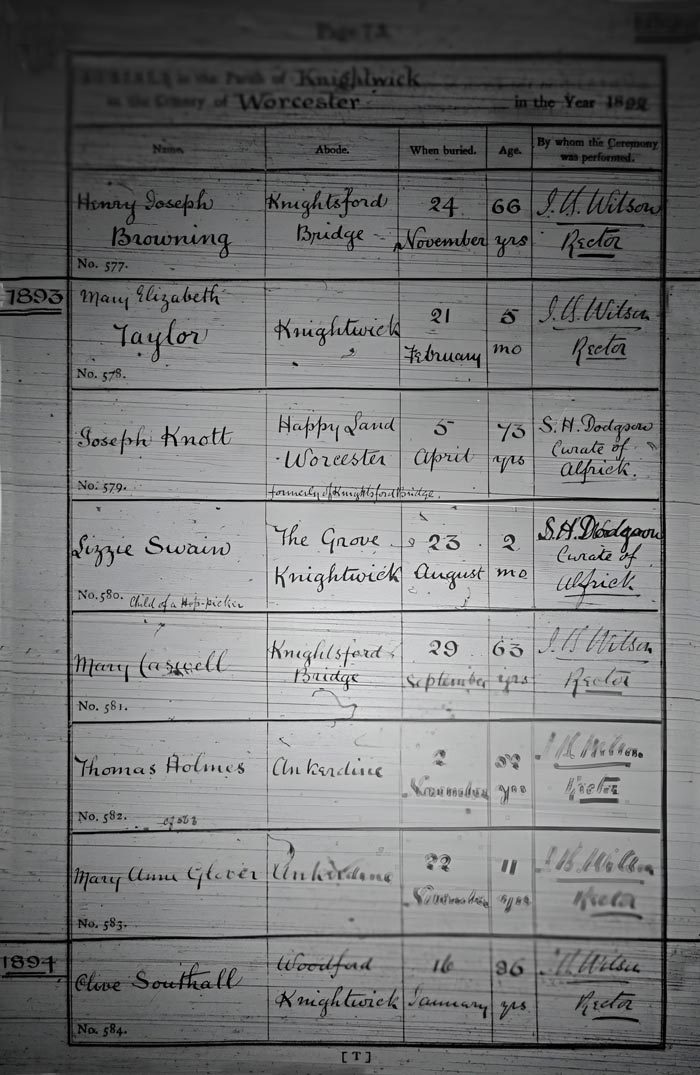 Page 73
BURIALS in the Parish of Knightwick
in the County of Worcester in the Year 1892
Name. Abode. When buried. Age. By whom the Ceremony was performed.
Henry Joseph Knightsford 24 66 J. B. Wilson
Browning Bridge November yrs Rector
No. 577.
1893
Mary Elizabeth 21 5 J. B. Wilson
Taylor Knightwick February mo Rector
No. 578.
Joseph Knott Happy Land 5 73 S. H. Dodgson
Worcester April yrs Curate of
Alfrick.
No. 579. formerly of Knightsford Bridge.
Lizzie Swain The Grove 23 2 S. H. Dodgson
Knightwick August mo Curate of
Alfrick
No. 580. Child of a Hop-picker
Mary Caswell Knightsford 29 63 J B Wilson
Bridge September yrs Rector
No. 581.
Thomas Holmes Ankerdine 2 J B Wilson
November yrs Rector
No. 582.
Mary Anne Glover Ankerdine 22 11 J B Wilson
November Rector
No. 583.
1894
Clive Southall Woodford 16 86 Wilson
Knightwick January yrs Rector
No. 584.
[T]